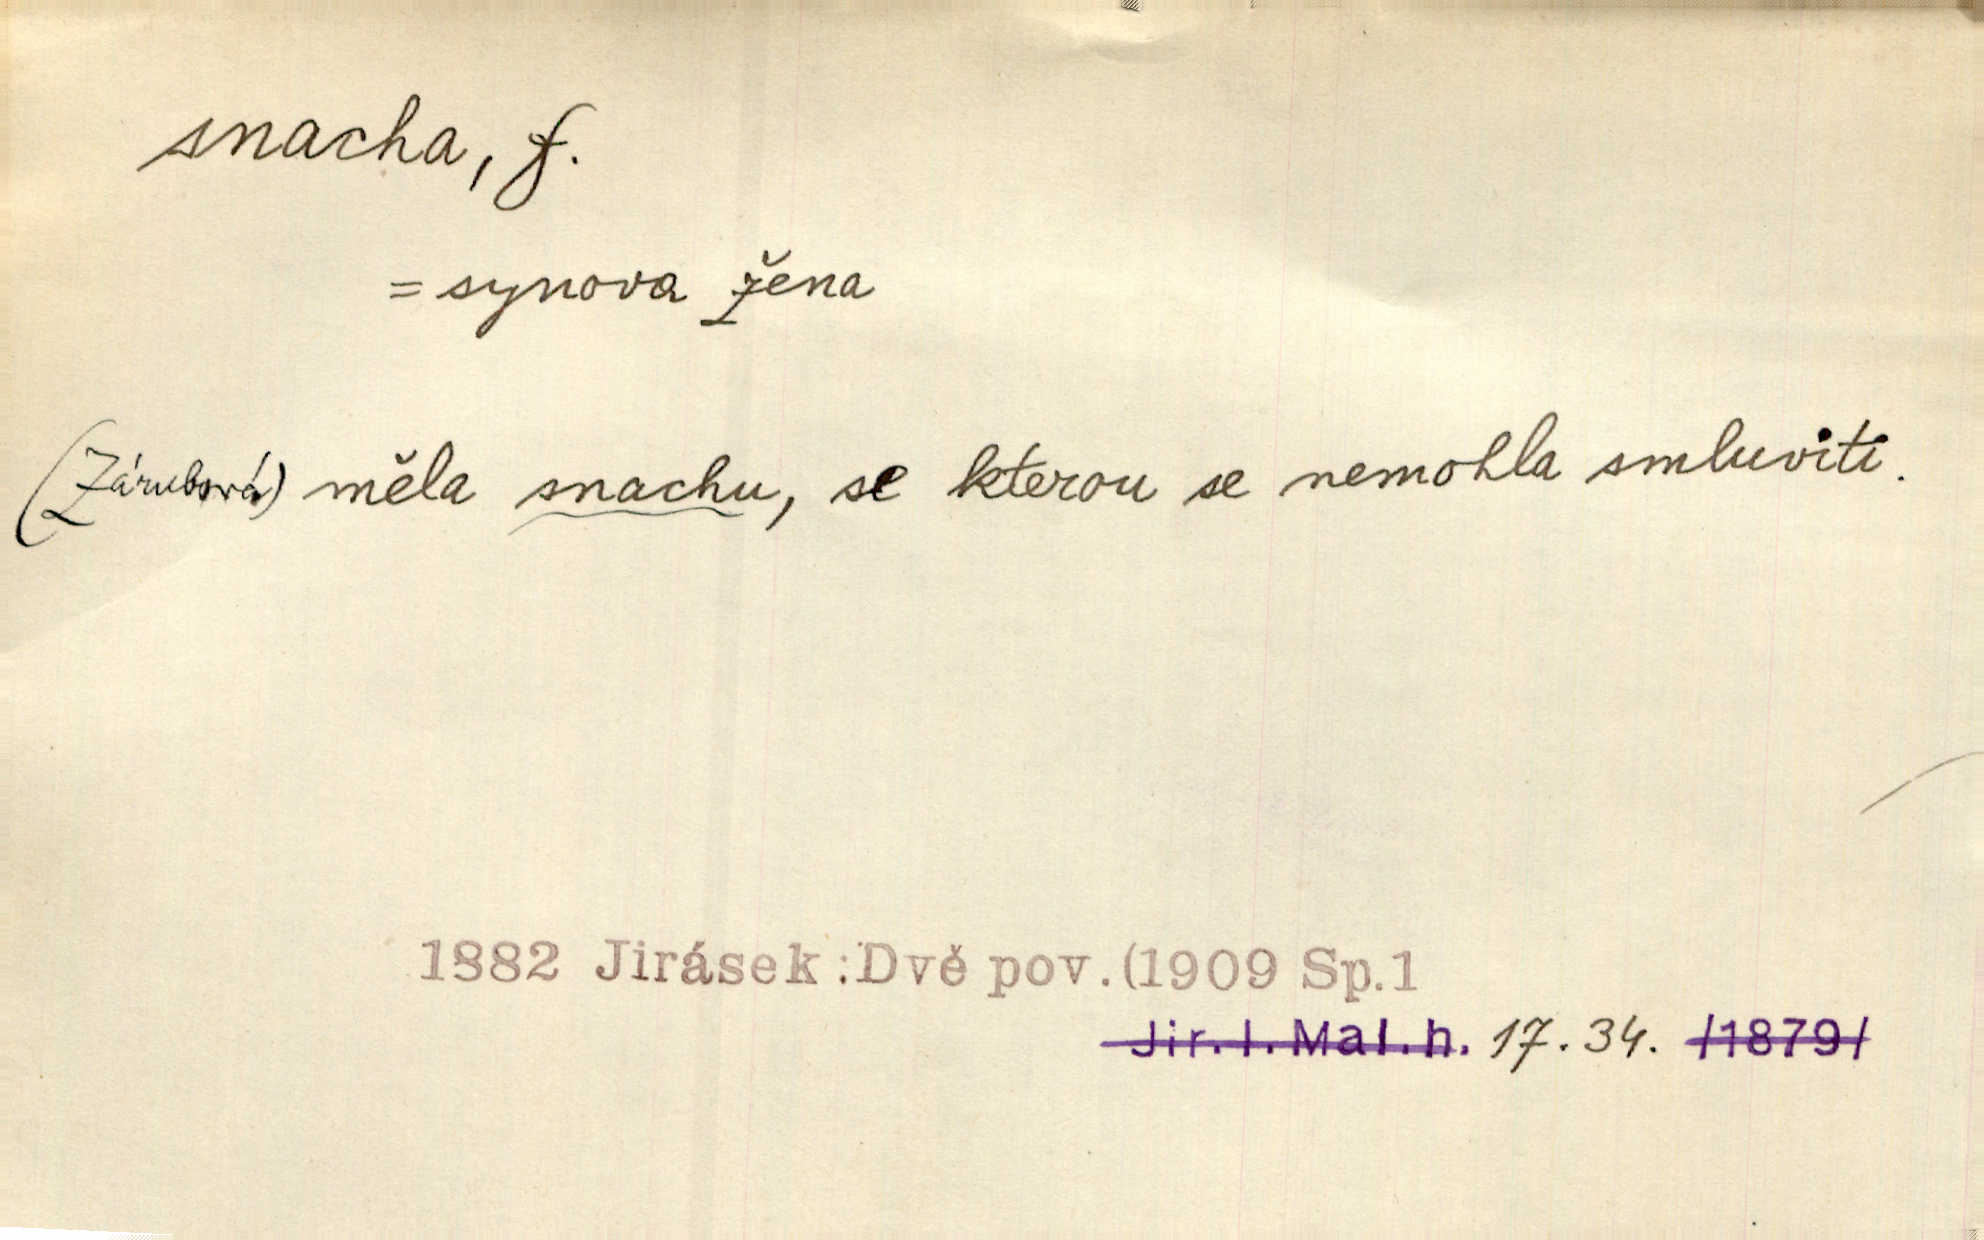 snacha, f.
= synova žena
(Zárubová) měla snachu, se kterou se nemohla smluviti.
1882 Jirásek:Dvě pov.(1909 Sp.1
Jir. I. Mal. h. 17. 34. /1879/